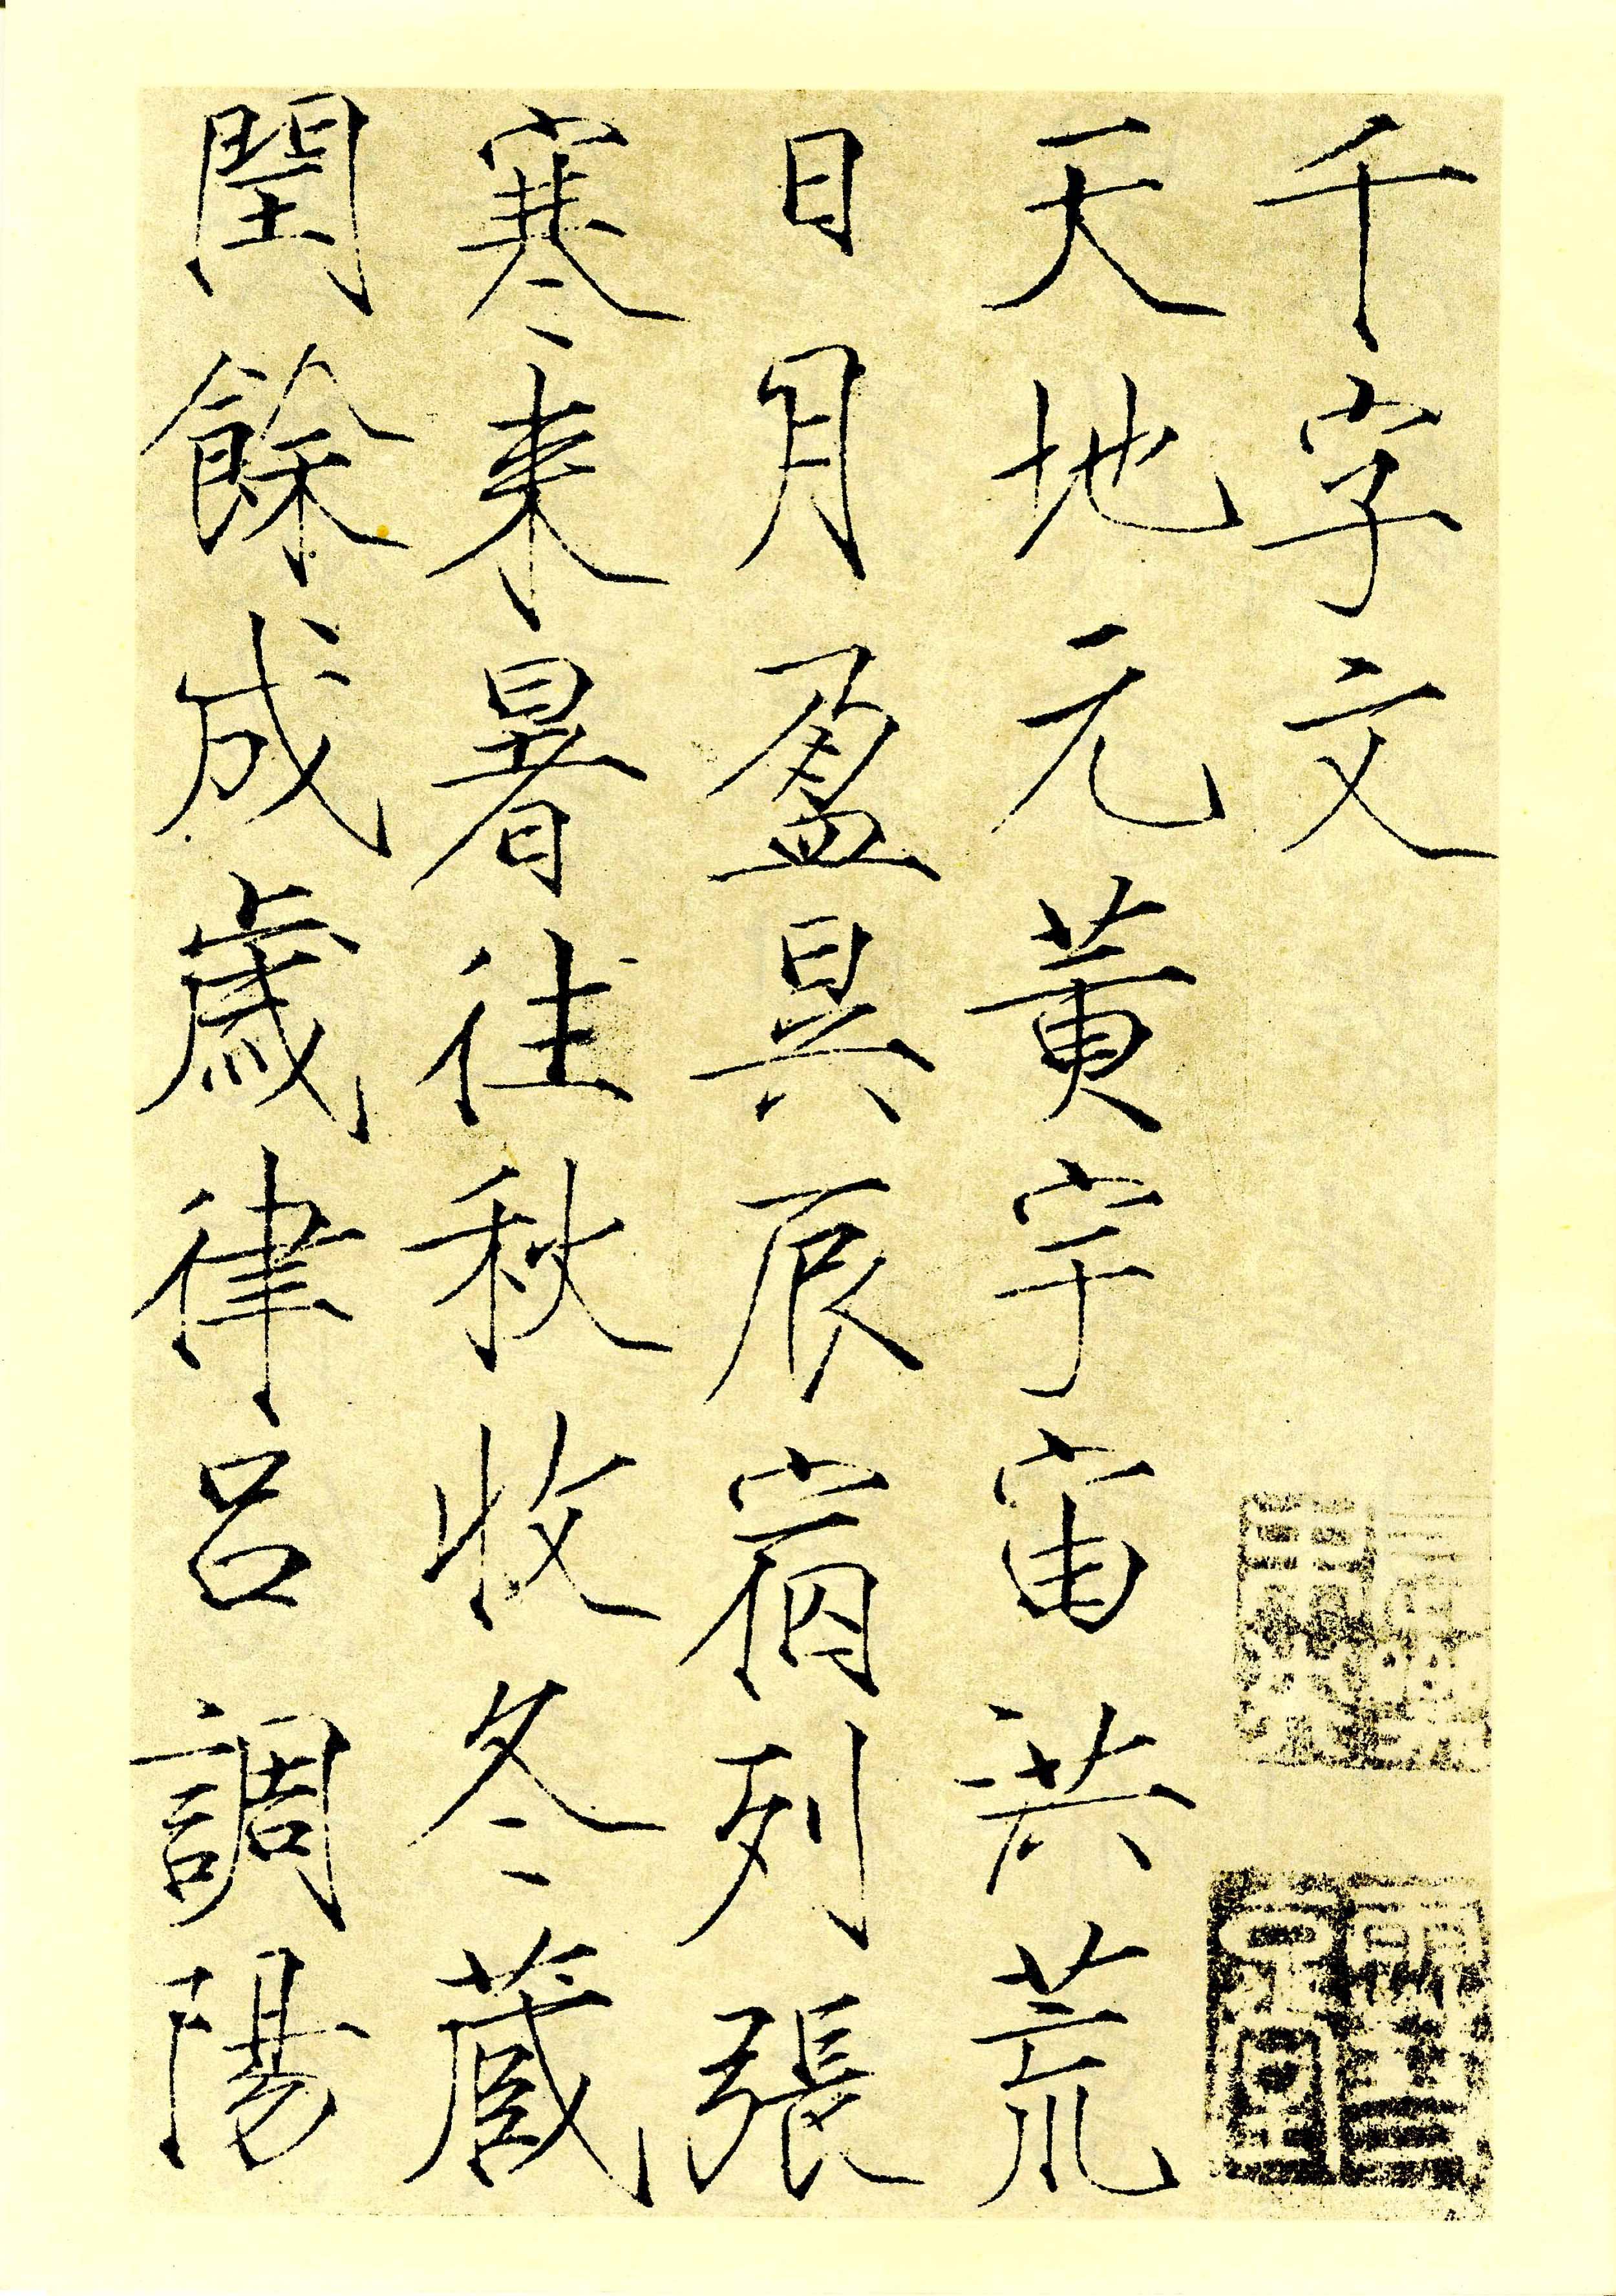 千字文
天地元黃宇宙洪荒
日月盈昃辰宿列張
寒来暑往秋收冬蔵
閏餘成歲律呂調陽